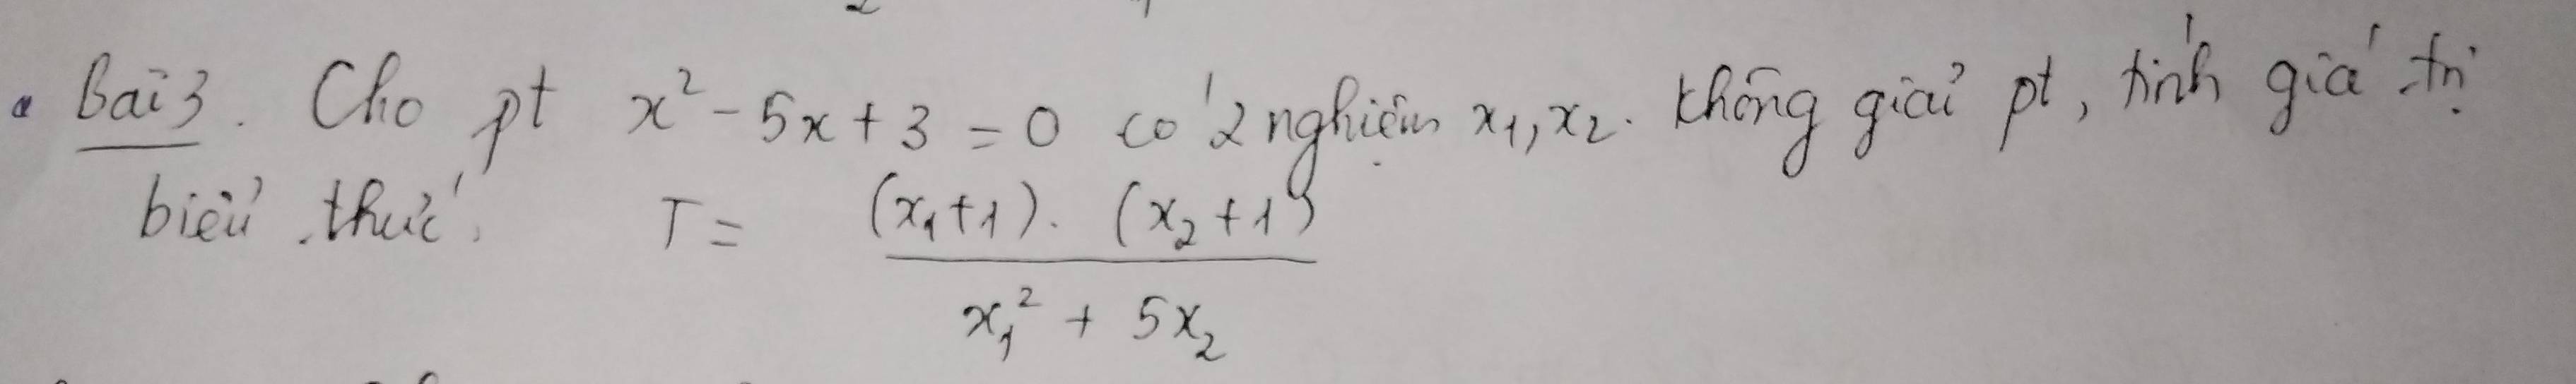 Bài 3. Cho pt x² - 5x + 3 = 0 có 2 nghiệm x₁, x₂. Không giải pt, tính giá trị
biểu thức. T = (x₁+1). (x₂+1)
x₁² + 5x₂